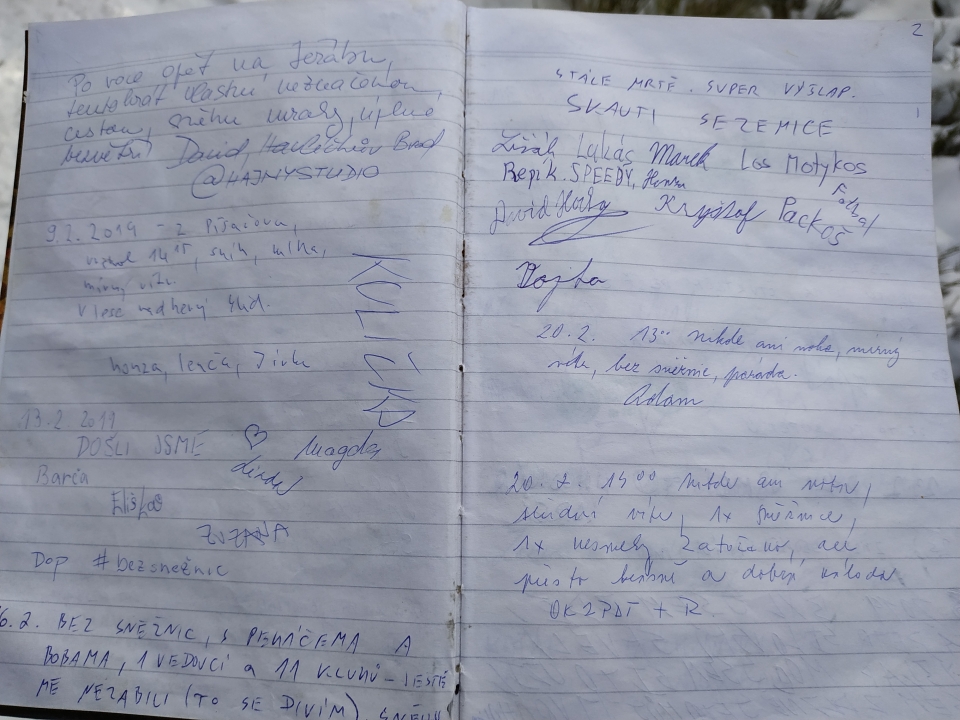 Po roce opět na Jeřábu,
tentokrát vlastní neznačenou
cestou, sněhu mraky, úplné
bezvětří David, Brod
@HAJNYSTUDIO
9.2.2019 - z Píšařova,
14 15, sníh, mlha,
mírný vítr.
V lese nádherný klid.
KULIČKA
honza, lenča, Jirka
13.2 2019
DOŠLI JSME
Magda
Barča
Eliška
ZUZANA
Dop #bezsnežnic
6.2. BEZ SNĚŽNIC, S PEKÁČEMA A
BOBAMA, 1 VEDOUCÍ a 11 KLUKŮ - JEŠTĚ
MĚ NEZABILI (TO SE DIVÍM). SNĚHU
2
STÁLE MRTĚ. SUPER VÝŠLAP.
SKAUTI SEZEMICE
Lukáš Marek Los Motykos
Řepík. SPEEDY, Honza
David Kryštof Packoš
Vojta
20.2. 13 00 nikde ani noha, mírný
vítr, bez sněžnic, paráda.
Adam
20.2. 14 00 nikde ani noha,
studený vítr, 1x sněžnice,
1x nesměle zataženo, ale
přesto krásně a dobrá nálada
OK2PDT + R